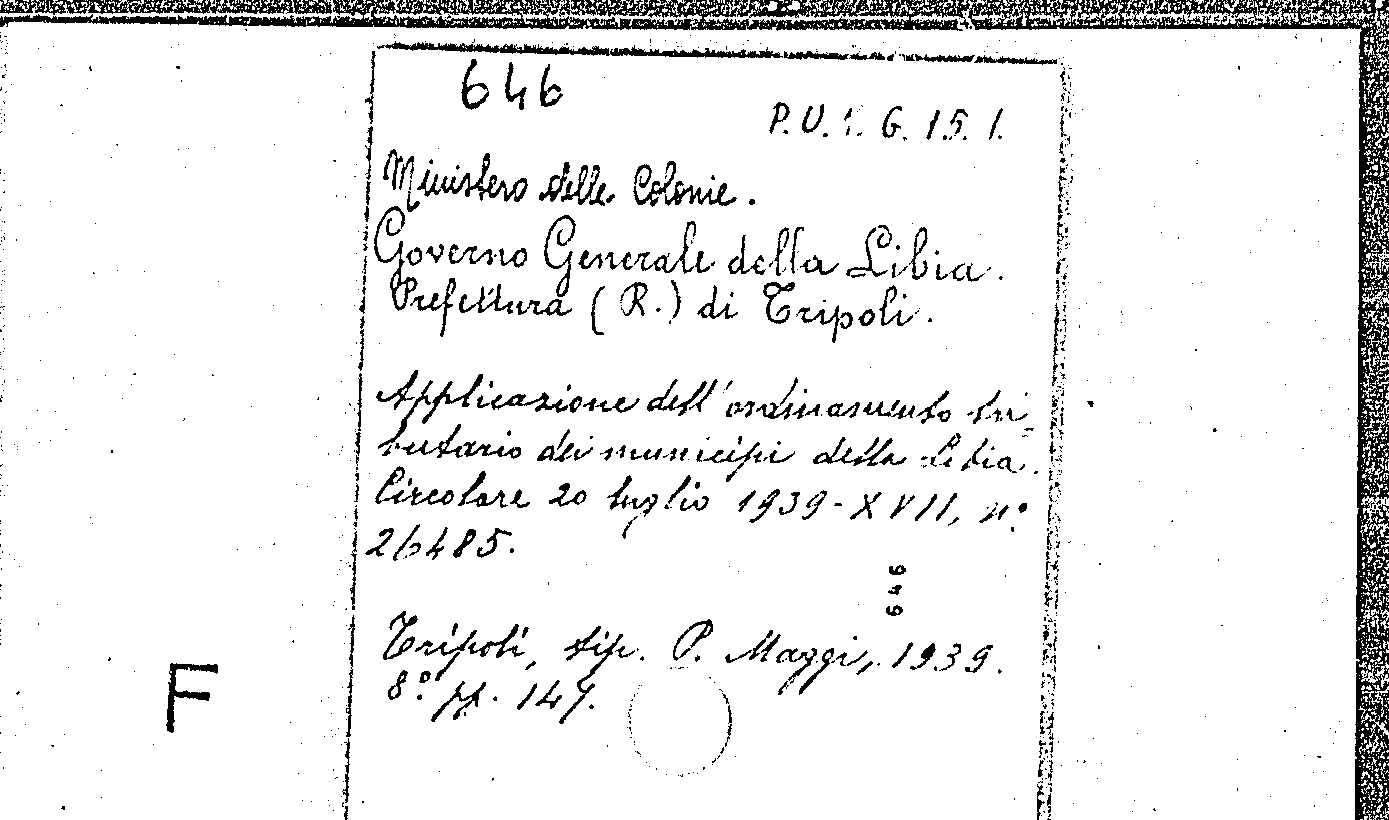 646
P. U. 1. G. 15. 1.
Ministero delle Colonie.
Governo Generale della Libia.
Prefettura (R.) di Tripoli.
Applicazione dell'ordinamento tri-
butario dei municipi della Libia.
Circolare 20 luglio 1939-XVII, n.°
26485.
646
Tripoli, tip. P. Maggi, 1939.
8.° pp. 147.
F